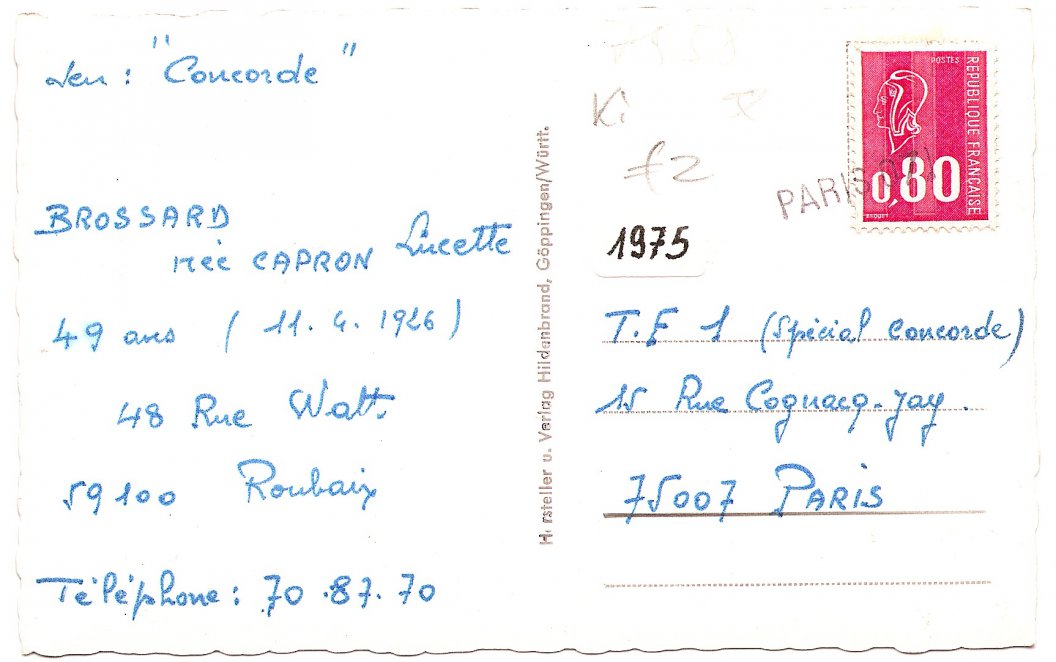 Jeu : "Concorde"
BROSSARD
née CAPRON Lucette
49 ans ( 11. 4. 1926 )
48 Rue Watt.
59100 Roubaix
Téléphone : 70.87.70
Hersteller u. Verlag Hildenbrand, Göppingen/Württ.
Ki
£2
1975
POSTES
REPUBLIQUE FRANÇAISE
0,80
PARIS
T.F 1 (Spécial Concorde)
15 Rue Cognacq-Jay.
75007 PARIS